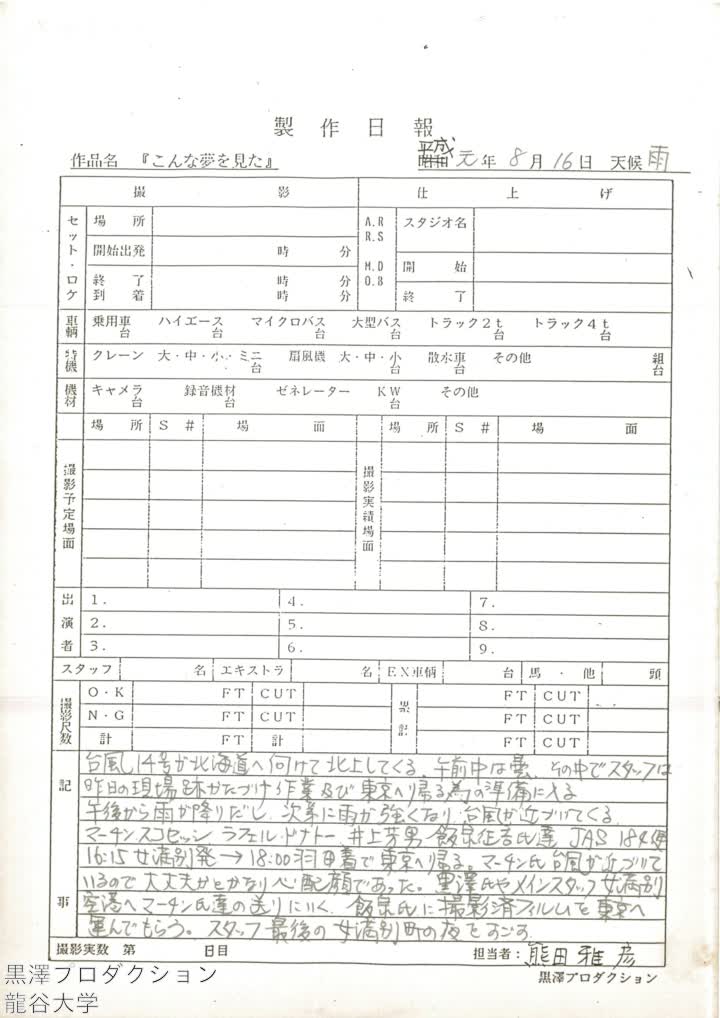 製作日報
作品名 『こんな夢を見た』 平成元年 8月16日 天候 雨
撮影 仕上げ
セット・ロケ 場所 A.R R.S スタジオ名
開始出発 時 分
終了 時 分 M.D O.B 開始
到着 時 分 終了
車輌 乗用車 台 ハイエース 台 マイクロバス 台 大型バス 台 トラック2t 台 トラック4t 台
特機 クレーン 大・中・小・ミニ 台 扇風機 大・中・小 台 散水車 台 その他 組 台
機材 キャメラ 台 録音機材 台 ゼネレーター KW 台 その他
撮影予定場面 場所 S# 場面 撮影実績場面 場所 S# 場面
出演者 1. 4. 7.
2. 5. 8.
3. 6. 9.
スタッフ 名 エキストラ 名 EX車輌 台 馬・他 頭
撮影尺数 O・K FT CUT 累計 FT CUT
N・G FT CUT FT CUT
計 FT 計 FT CUT
記事
台風14号が北海道へ向けて北上してくる。午前中は曇、その中でスタッフは
昨日の現場跡かたづけ作業及び東京へ帰る為の準備に入る
午後から雨が降りだし、次第に雨が強くなり、台風が近づいてくる。
マーチンスコセッシ ラフェル・ドナトー 井上芳男 飯泉征吉氏達 JAS 184便
16:15 女満別発→18:00 羽田着で東京へ帰る。マーチン氏台風が近づいて
いるので大丈夫かとかなり心配顔であった。黒澤氏やメインスタッフ女満別
空港へマーチン氏達の送りにいく。飯泉氏に撮影済フィルムを東京へ
運んでもらう。スタッフ最後の女満別町の夜をすごす。
撮影実数 第 日目 担当者: 熊田雅彦
黒澤プロダクション
黒澤プロダクション
龍谷大学